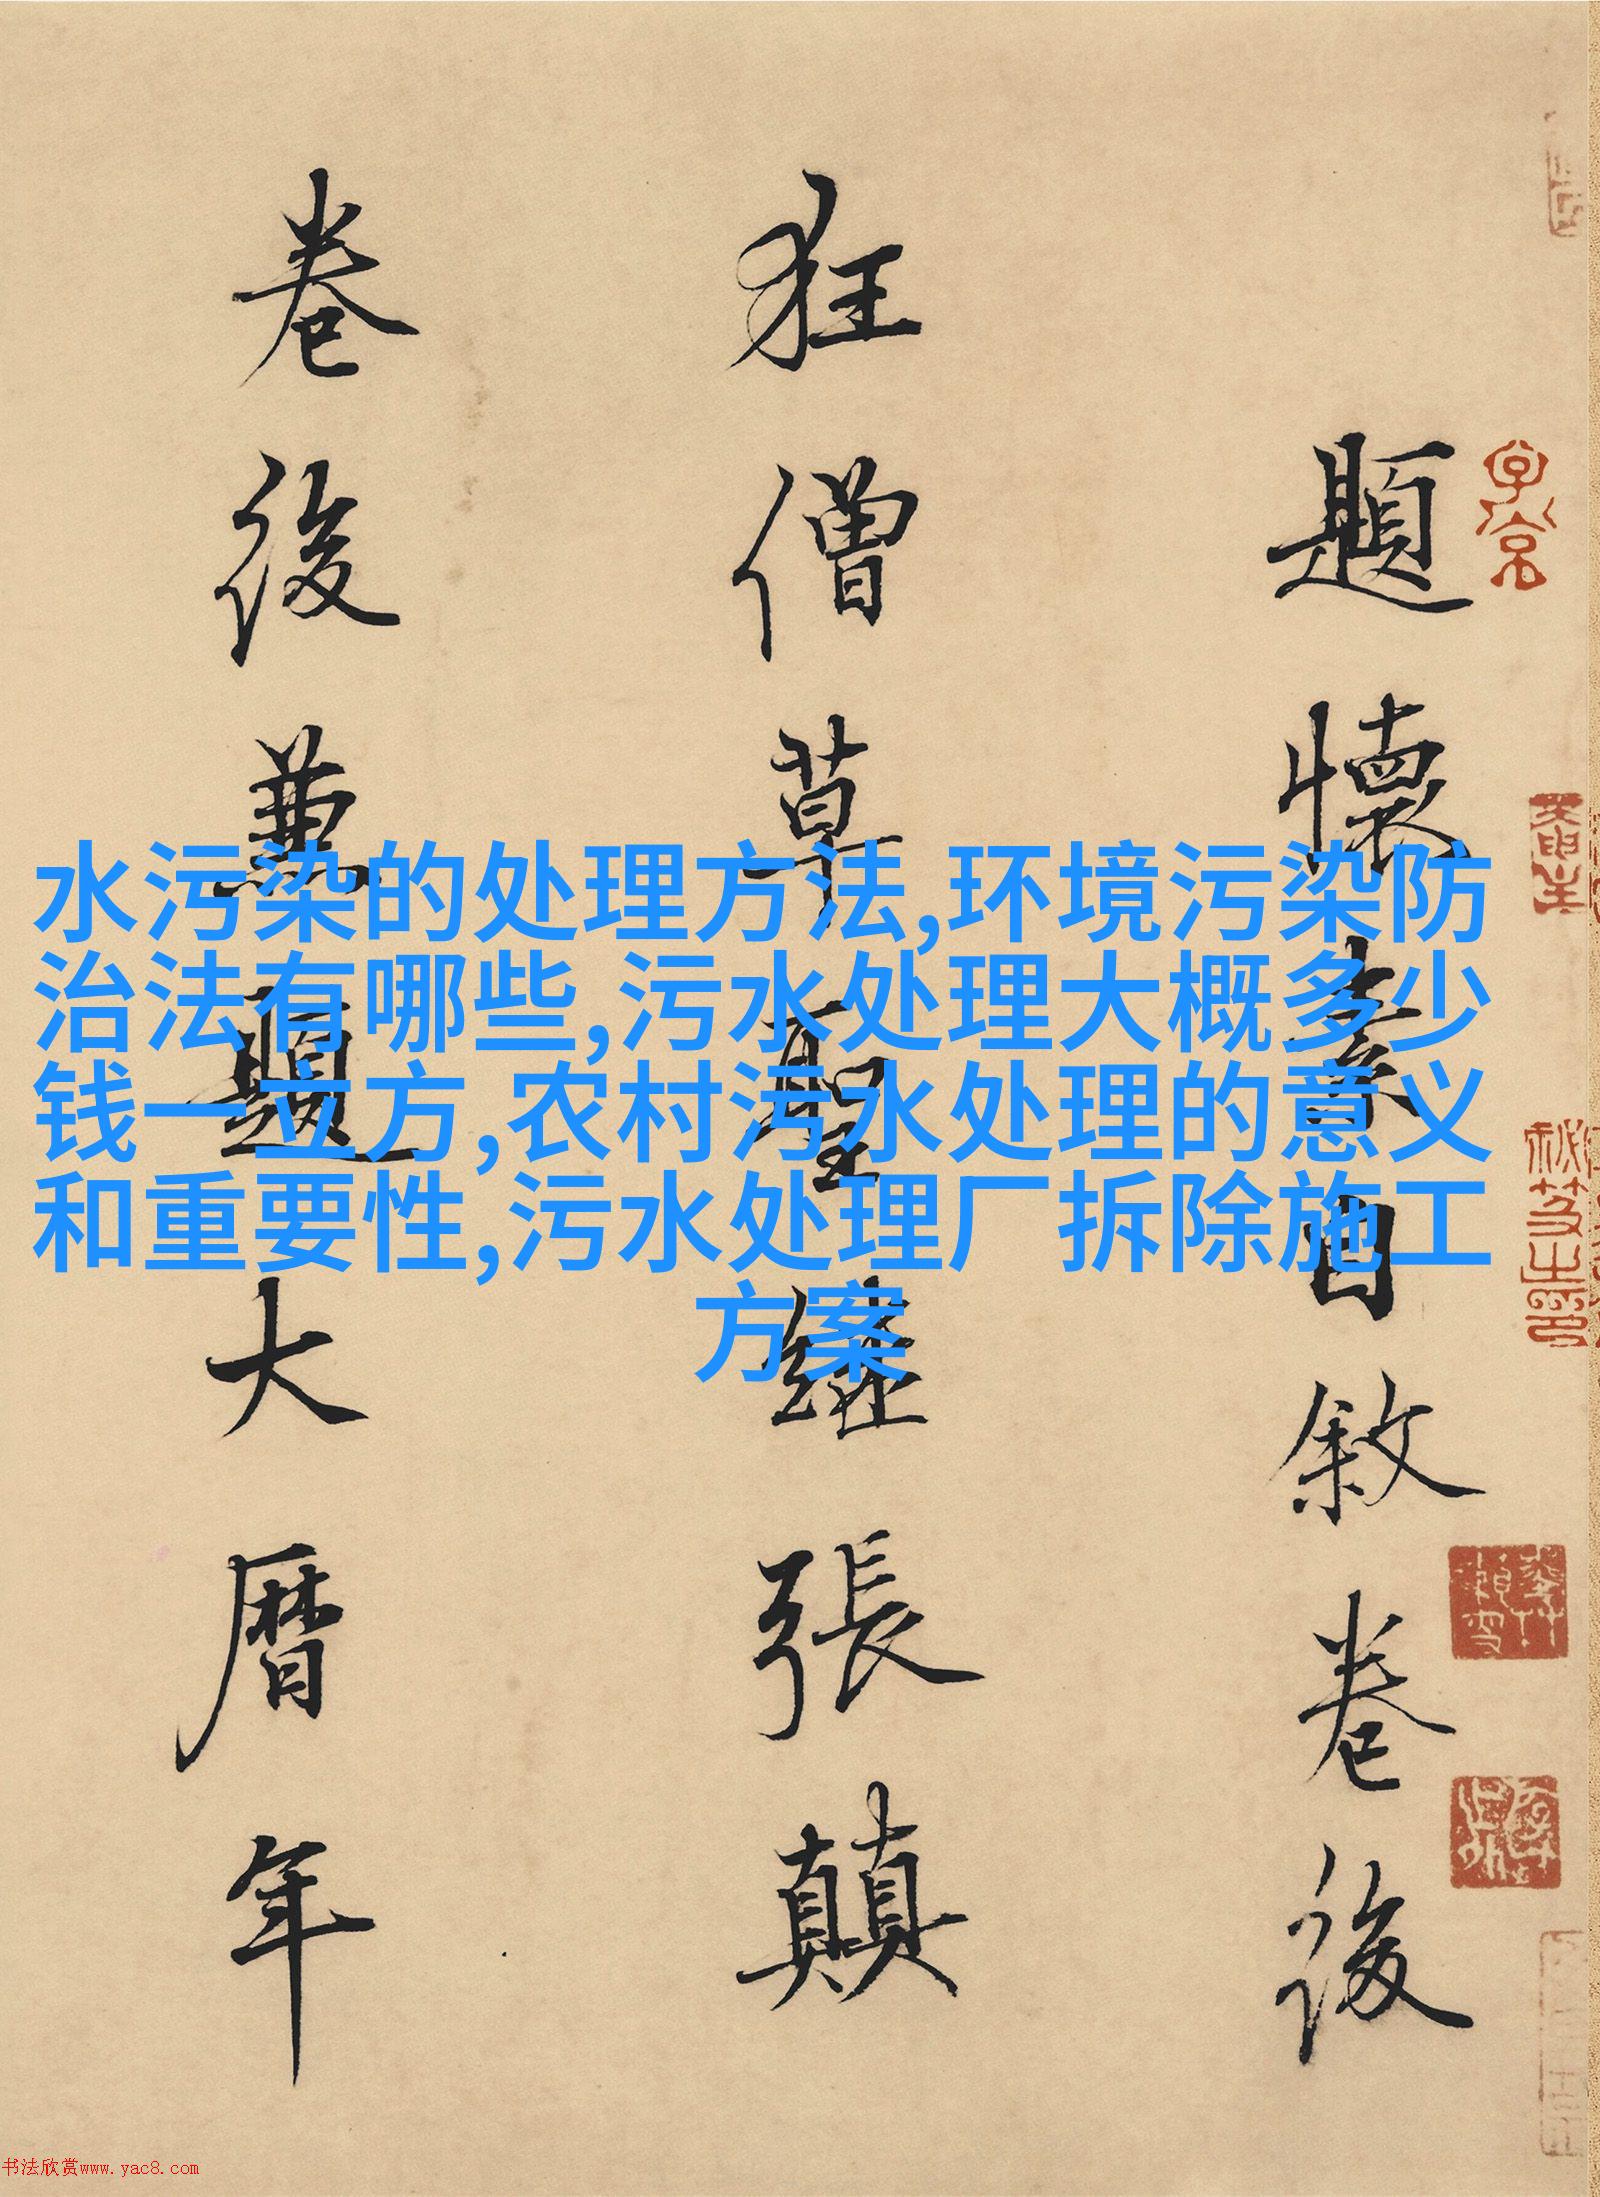 題懷素自敘卷後
狂僧草聖繼張顛
卷後兼題大曆年
水污染的处理方法,环境污染防
治法有哪些,污水处理大概多少
钱一立方,农村污水处理的意义
和重要性,污水处理厂拆除施工
方案
书法欣赏www.yac8.com